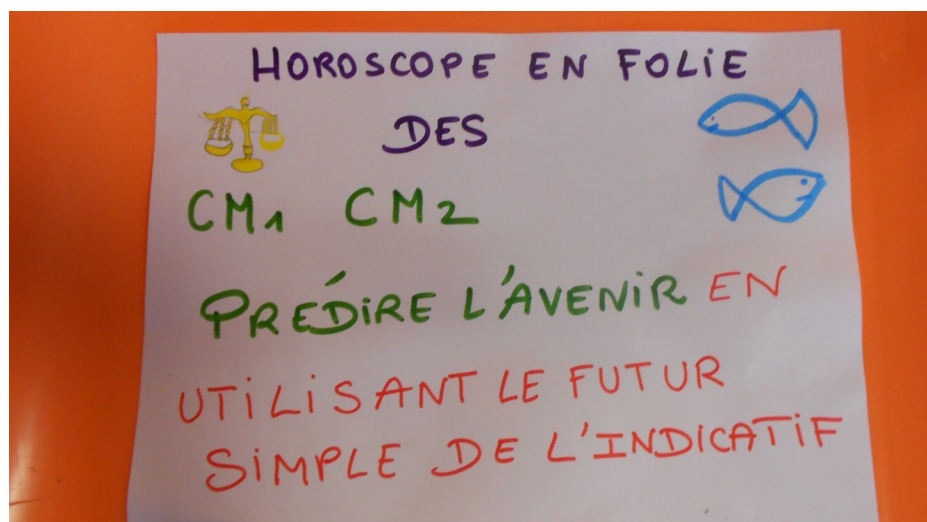 HOROSCOPE EN FOLiE
DES
CM1 CM2
PRÉDiRE L'AVENiR EN
UTiLiSANT LE FUTUR
SiMPLE DE L'INDiCATiF